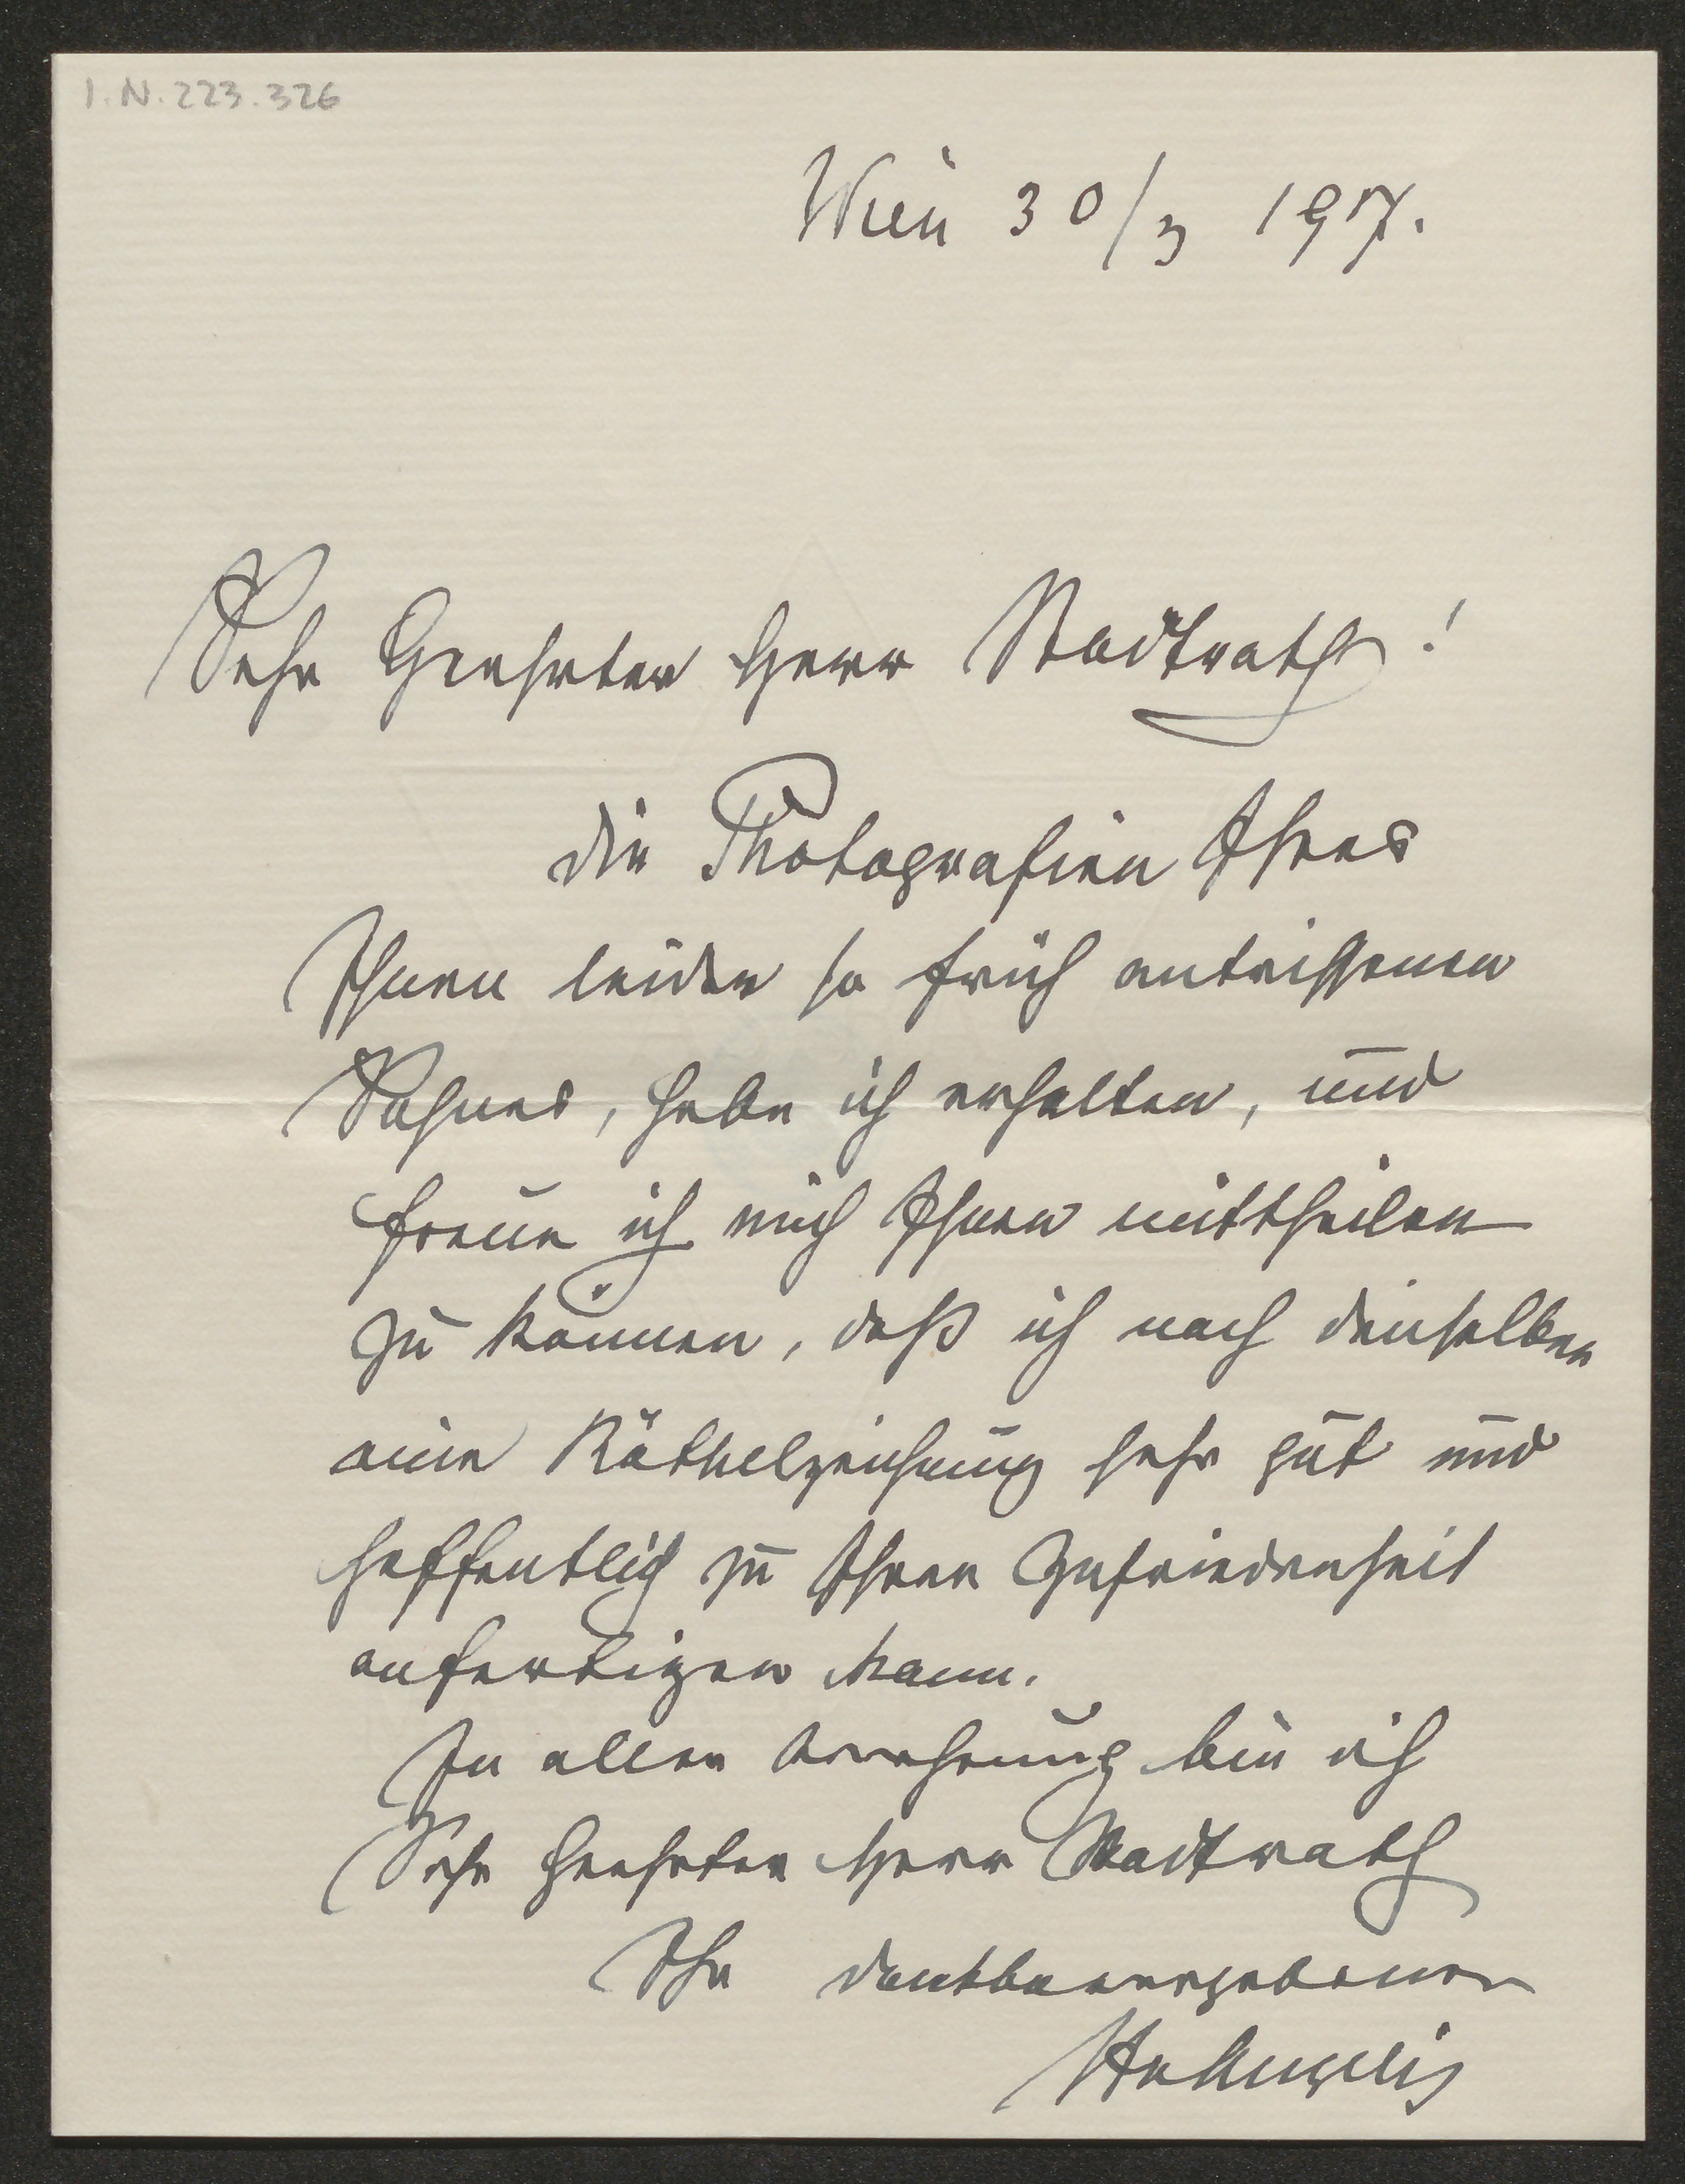 I.N. 223.326
Wien 30/3 1917.
Sehr Geehrter Herr Stadtrath!
die Photografien Ihres
Ihnen leider so früh entrissenen
Sohnes, habe ich erhalten, und
freue ich mich Ihnen mittheilen
zu können, daß ich nach denselben
eine Röthelzeichnung sehr gut und
hoffentlich zu Ihrer Zufriedenheit
anfertigen kann.
In aller Verehrung bin ich
Sehr geehrter Herr Stadtrath
Ihr dankbarergebener